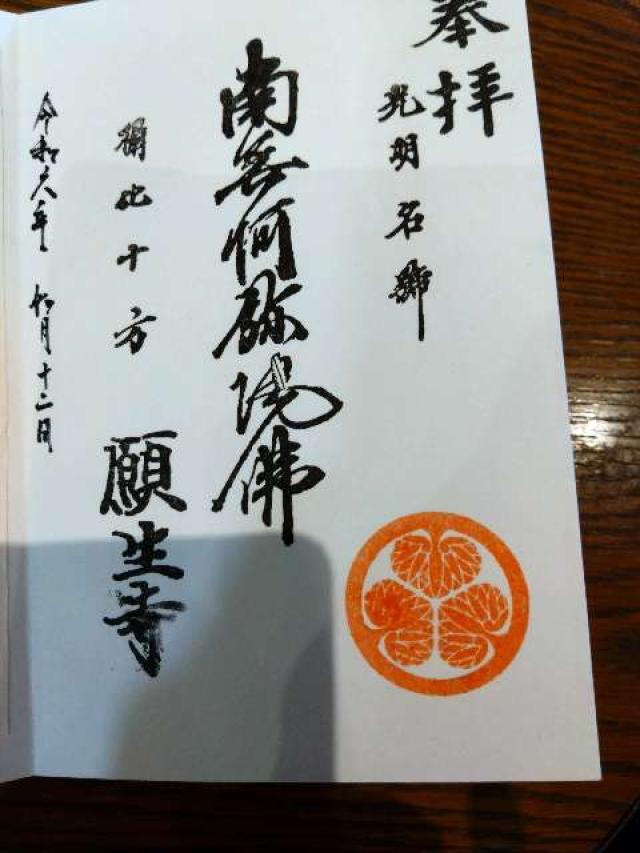 奉拝
光明名號
南無阿弥陀佛
攝化十方
願生寺
令和六年 月十二日